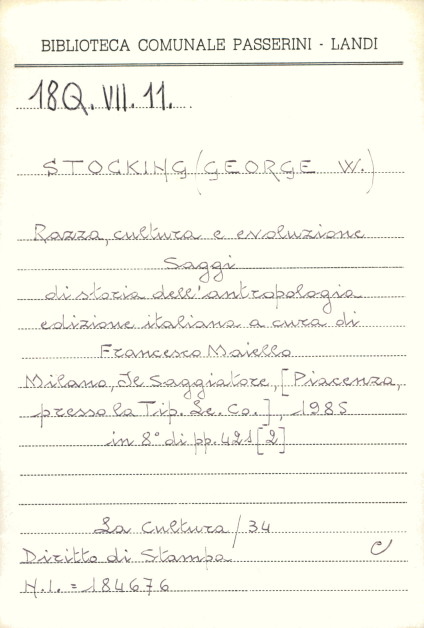 BIBLIOTECA COMUNALE PASSERINI - LANDI
18Q.VII.11.
STOCKING (GEORGE W.)
Razza, cultura e evoluzione
Saggi
di storia dell'antropologia
edizione italiana a cura di
Francesco Maiello
Milano, Il Saggiatore, [Piacenza,
presso la Tip. Le. Co.], 1985
in 8° di pp. 421 [2]
La Cultura / 34
Diritto di Stampa
N.I. = 184676